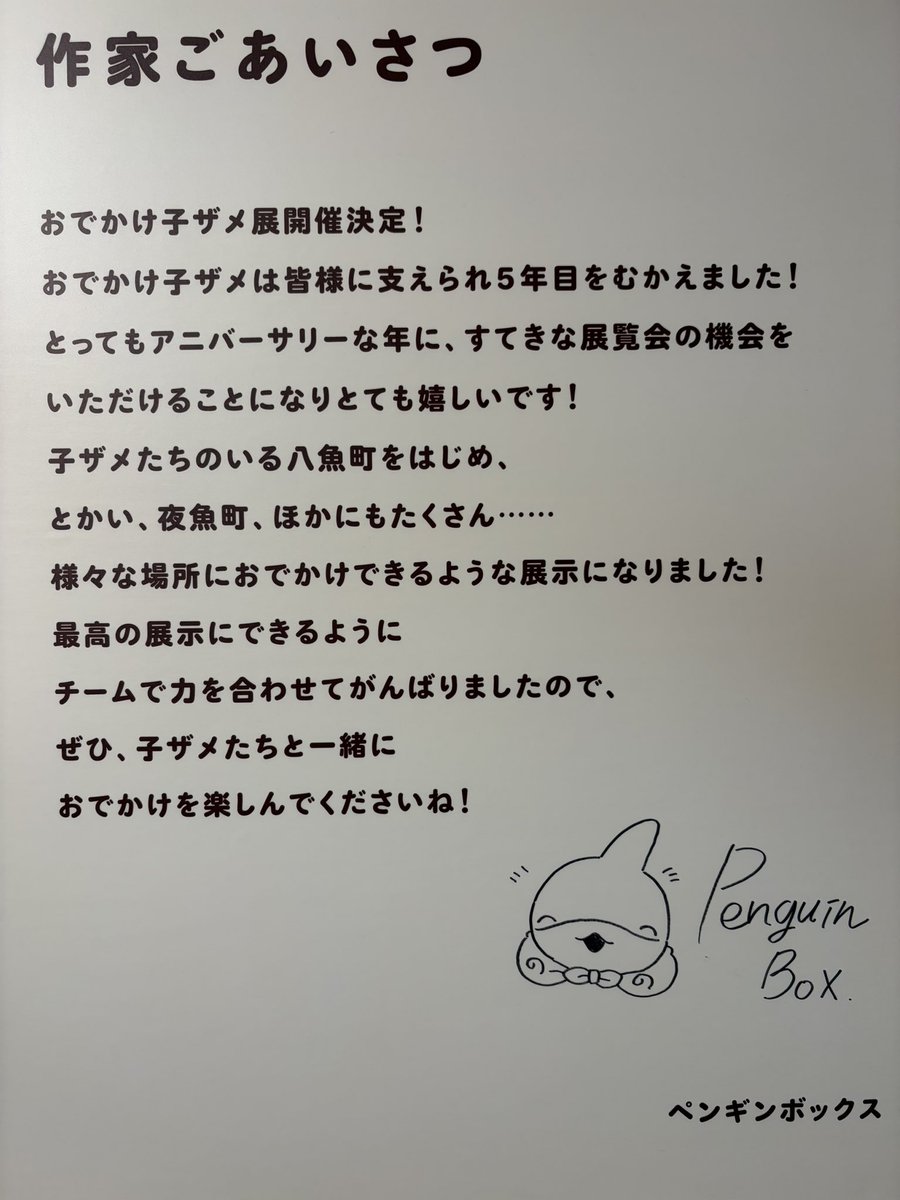 作家ごあいさつ
おでかけ子ザメ展開催決定！
おでかけ子ザメは皆様に支えられ5年目をむかえました！
とってもアニバーサリーな年に、すてきな展覧会の機会を
いただけることになりとても嬉しいです！
子ザメたちのいる八魚町をはじめ、
とかい、夜魚町、ほかにもたくさん……
様々な場所におでかけできるような展示になりました！
最高の展示にできるように
チームで力を合わせてがんばりましたので、
ぜひ、子ザメたちと一緒に
おでかけを楽しんでくださいね！
Penguin
Box.
ペンギンボックス